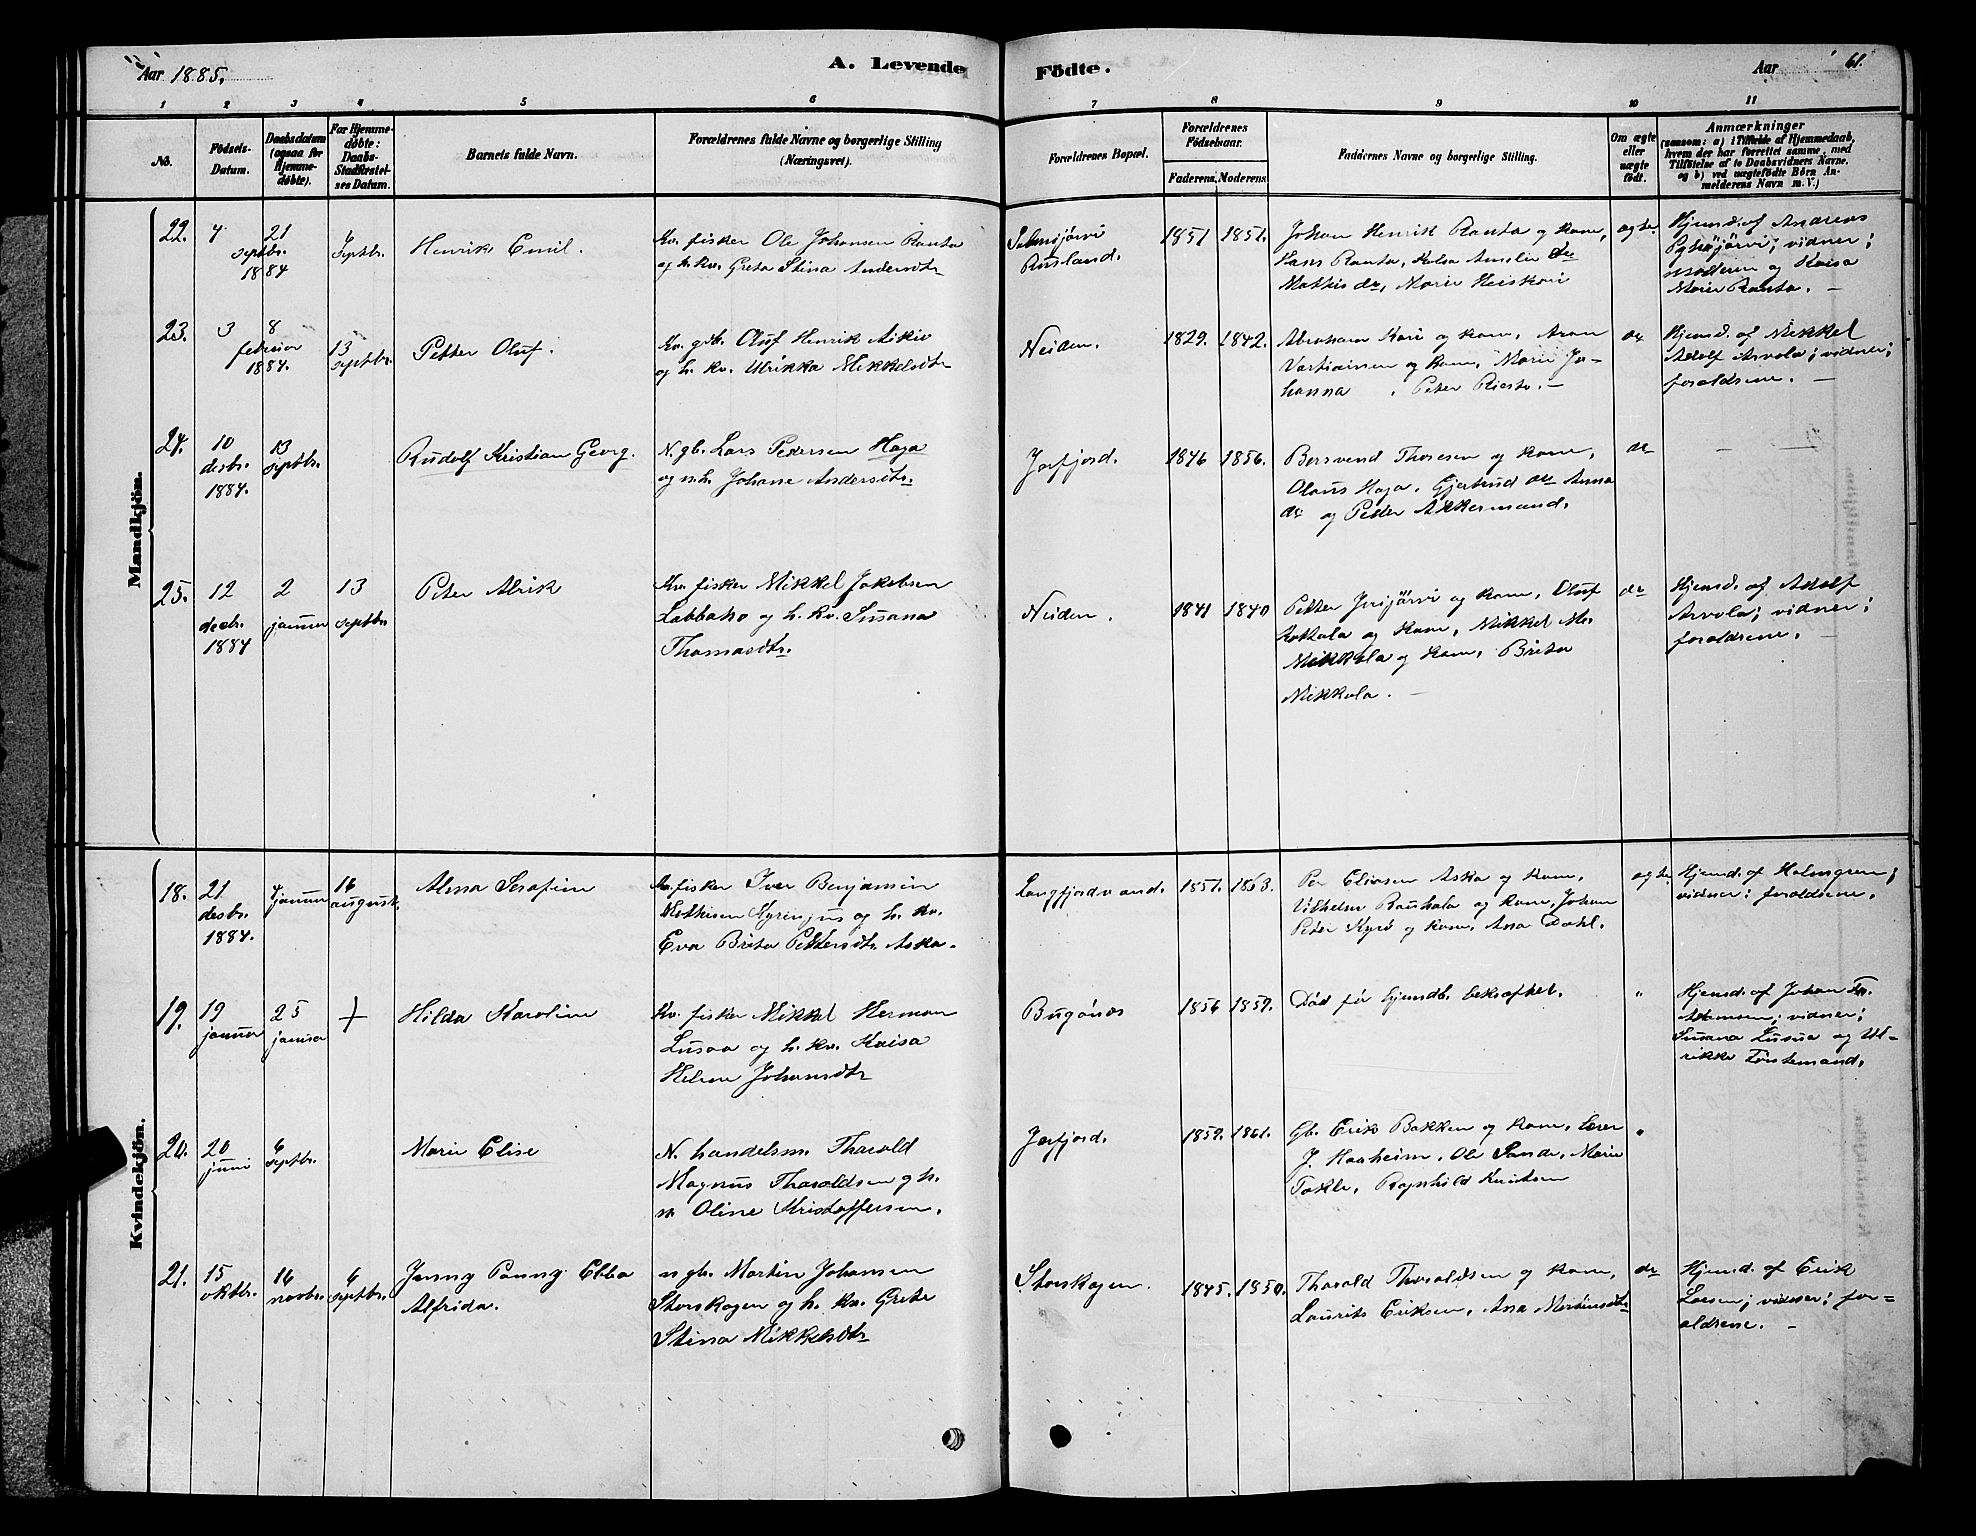 Aar 1885.
A. Levende
Födte.
Aar
61.
1 2 3 4 5 6 7 8 9 10 11
No.
Födsels-
Datum.
Daabsdatum
(ogsaa for
Hjemme-
döbte).
For Hjemme-
döbte:
Daabs-
Stadfæstel-
ses Datum.
Barnets fulde Navn.
Forældrenes fulde Navne og borgerlige Stilling
(Næringsvei).
Forældrenes Bopæl.
Forældrenes
Födselsaar.
Faderens. Moderens.
Faddernes Navne og borgerlige Stilling.
Om ægte
eller
uægte
født.
Anmærkninger
(saasom: a) i Tilfælde af Hjemmedaab,
hvem der har forrettet samme, med
Tilföielse af to Daabsvidners Navne,
og b) ved uægtefödte Börn An-
melderens Navn m. V.)
Mandkjön.
22.
4
septbr.
1884
21
septbr.
Henrik Emil.
Kv. fisker Ole Johansen Ranta
og h. kv. Greta Stina Andersdtr
Salmijärvi
Rusland.
1851 1851.
Johan Henrik Ranta og kone,
Hans Ranta, Kalsa Amelie
Mathis dr, Marie Heiskari
ægte.
Hjemd. af Andreas
vidner;
moderen og Kaisa
Marie Ranta. —
23.
3
februar
1884.
8
13
septbr.
Petter Oluf.
Kv. gdb. Oluf Henrik Aikio
og h. kv. Ulrikka Mikkelsdtr
Neiden.
1829. 1842.
Abraham Kari og kone, Aron
Vartiainen og kone, Marie Jo-
hanna . Peter Riesto. —
do
Hjemd. af Mikkel
Adolf Arvola; vidner;
forældrene. —
24.
10
desbr.
1884.
13
septbr.
Rudolf Kristian Georg.
N. gb. Lars Pedersen Haga
og n. h. Johane Andersdtr.
Jarfjord.
1846 1856.
Borsvend Thoresen og kone,
Olaus Haga, Gjertrud do Anna
do og Petter Akkermand.
do
— —
25.
12
decbr.
1884
2
januar
13
septbr.
Peter Alrik
Kv. fisker Mikkel Jakobsen
Labbako og h. kv. Susana
Thomasdtr.
Neiden.
1841 1840
Petter Jerijärvi og kone, Oluf
og kone, Mikkel M.
Mikkola og kone, Brita
Mikkola. —
do
Hjemd. af Adolf
Arvola; vidner;
forældrene. —
Kvindekjön.
18.
21
desbr.
1884.
4
januar
16
august.
Alma Serafine
Kv. fisker Iver Benjamin
Mathisen og h. kv.
Eva Brita Pettersdtr. Aska.
Langfjordvand.
1851. 1863.
Per Eliasen Aska og kone,
Vilhelm Rauhala og kone, Johan
Peter Kyrö og kone, Ana Dahl.
ægte.
Hjemd. af Holmgren;
vidner: forældrene.
19.
19
januar
25
januar
+
Hilda Karoline
Kv. fisker Mikkel Herman
Lusaa og h. kv. Kaisa
Helene Johansdtr
Bugönæs
1856 1859.
Död för hjemdb. beksæftet.
"
Hjemd. af Johan Fr.
Adamsen; vidner;
Susana Lusua og Ul-
rikke Tornemand.
20.
20
juni
6
septbr.
Marie Elise
N. handelsm. Tharald
Magnus Tharaldsen g h.
n. Oline Kristoffersen.
Jarfjord.
1859. 1861.
Gb. Erik Bakken og kone, Lærer
J. Haaheim, Ole Sande, Marie
Takle, Ragnhild Knutsen
"
21.
15
oktbr.
16
novbr.
6
septbr.
Jenny Fanny Ebba
Alfrida.
n gb. Martin Johansen
Storskogen og h. kv. Grete
Stina Mikkelsdtr
Storskogen.
1845. 1850.
Tharald Tharaldsen og kone,
Laurits Eriksen, Ana Martinsdtr
do
Hjemd. af Erik
Larsen; vidner; for-
ældrene. —